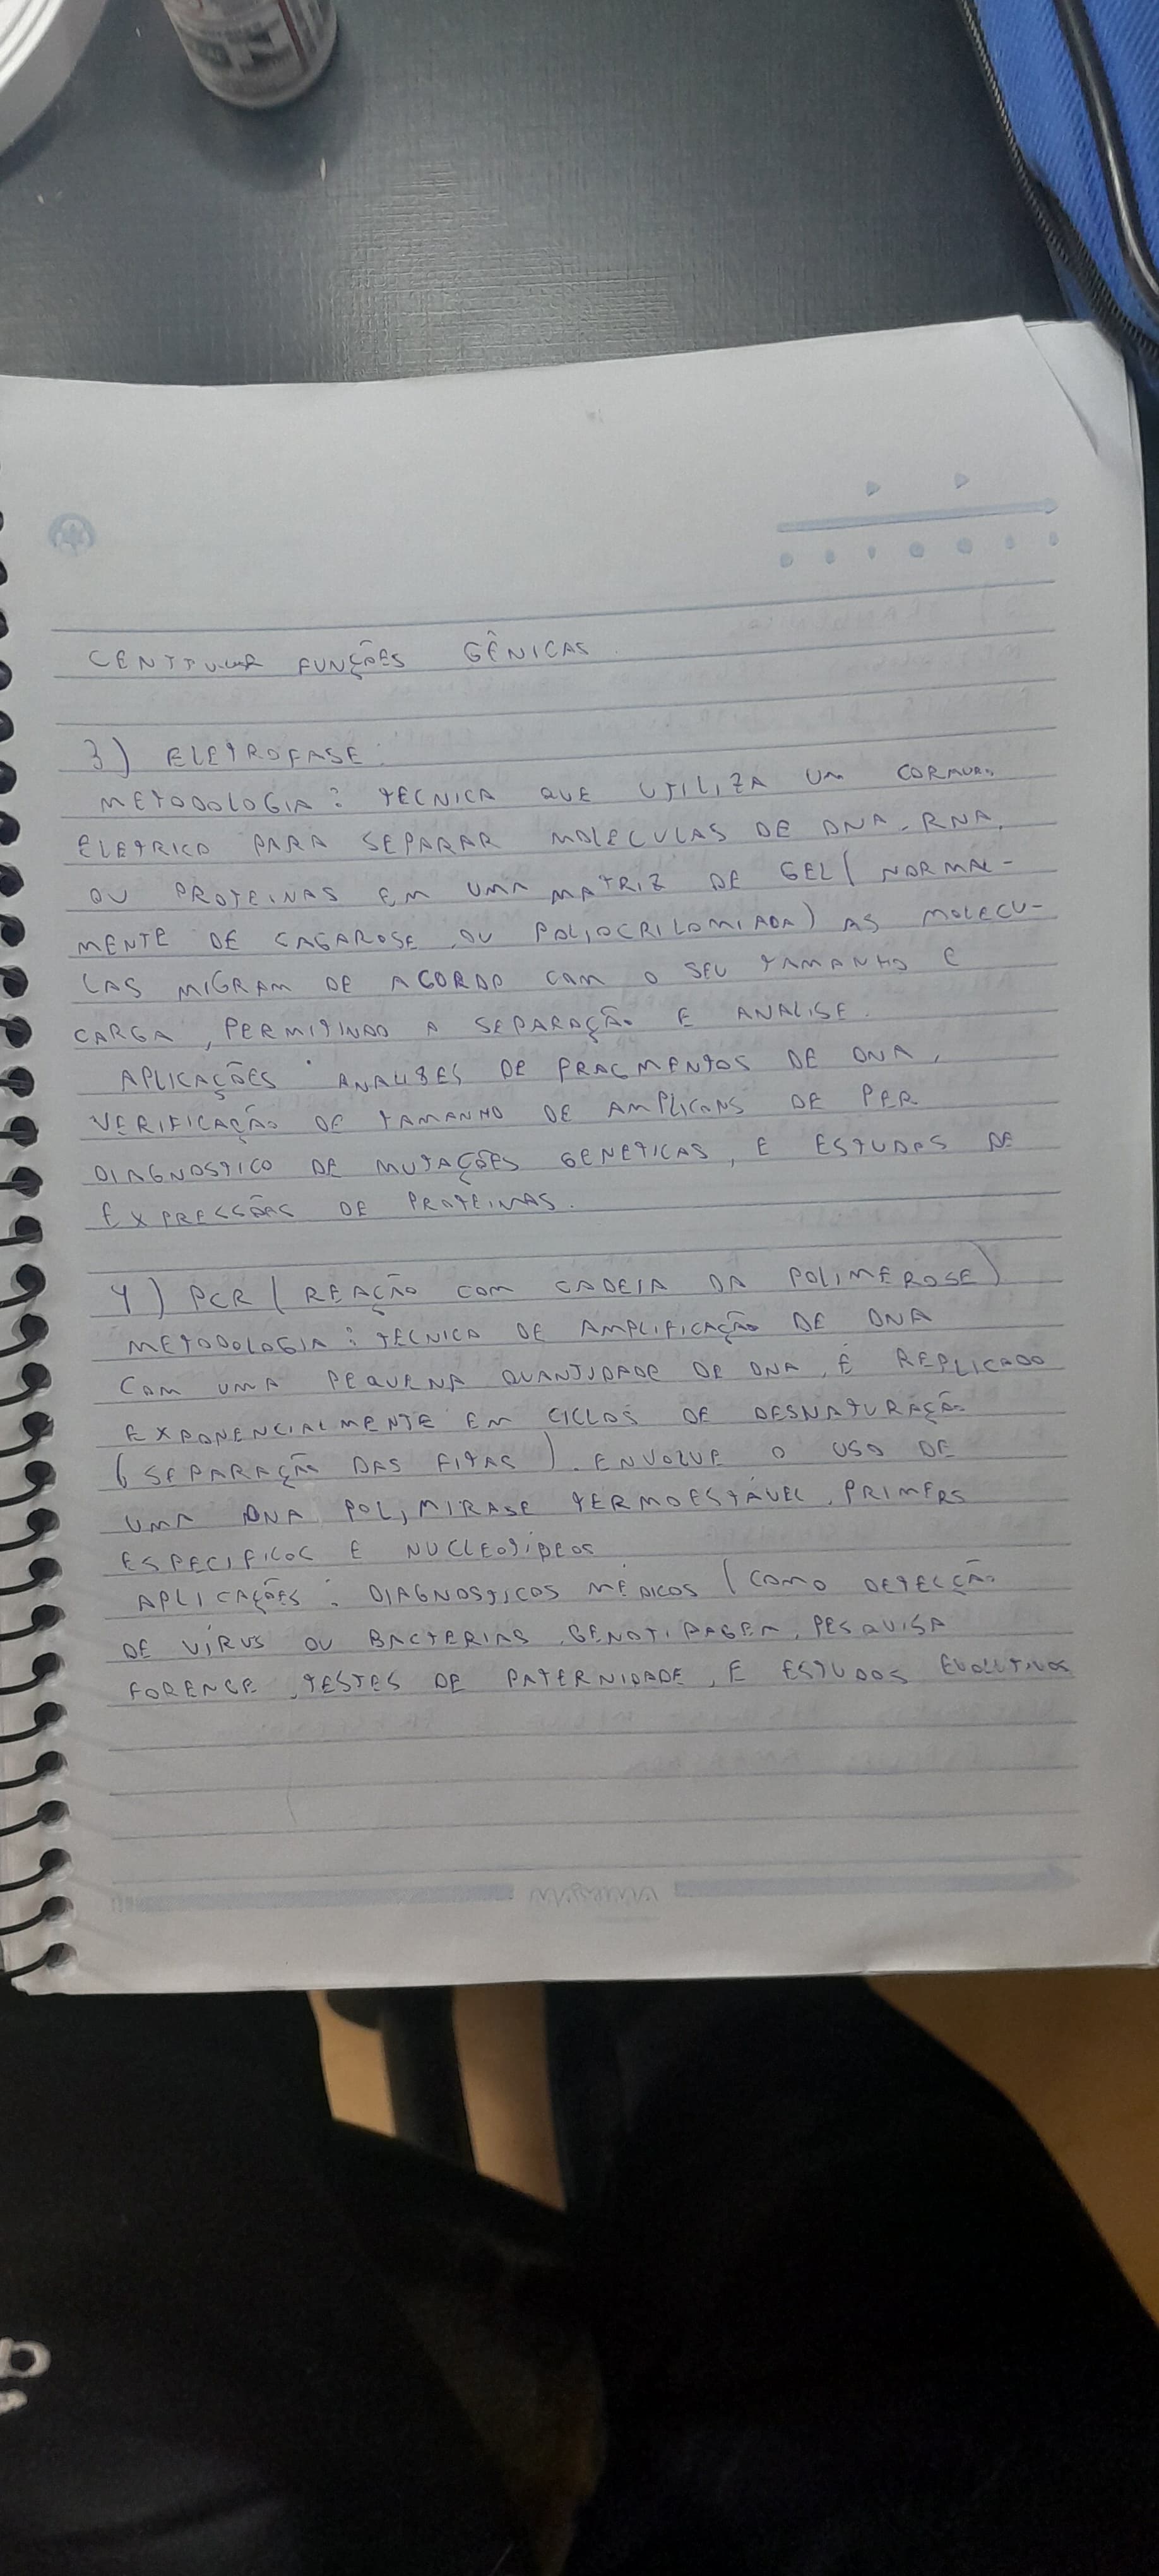 FUNÇÕES GÊNICAS
3) ELETROFASE:
METODOLOGIA: TECNICA QUE UTILIZA UM
ELETRICO PARA SEPARAR MOLECULAS DE DNA, RNA,
OU PROTEINAS EM UMA MATRIZ DE GEL (NORMAL-
MENTE DE CAGAROSE OU POLIOCRILOMIADA) AS MOLECU-
LAS MIGRAM DE ACORDO COM O SEU TAMANHO E
CARGA, PERMITINDO A SEPARAÇÃO E ANALISE.
APLICAÇÕES: ANALISES DE FRAGMENTOS DE DNA,
VERIFICAÇÃO DE TAMANHO DE AMPLICONS DE PER
DIAGNOSTICO DE MUTAÇÕES GENETICAS, E ESTUDOS DE
EXPRESSÕES DE PROTEINAS.
4) PCR (REAÇÃO COM CADEIA DA POLIMEROSE)
METODOLOGIA: TÉCNICA DE AMPLIFICAÇÃO DE DNA
COM UMA PEQUENA QUANTIDADE DE DNA, É REPLICADO
EXPONENCIALMENTE EM CICLOS DE DESNATURAÇÃO
(SEPARAÇÃO DAS FITAS). ENVOLVE O USO DE
UMA DNA POLIMIRASE TERMOESTÁVEL, PRIMERS
ESPECIFICOS E NUCLEOTIDEOS
APLICAÇÕES: DIAGNOSTICOS MÉDICOS (COMO DETECÇÃO
DE VÍRUS OU BACTERIAS, GENOTIPAGEM, PESQUISA
FORENCE, TESTES DE PATERNIDADE, E ESTUDOS EVOLUTIVOS